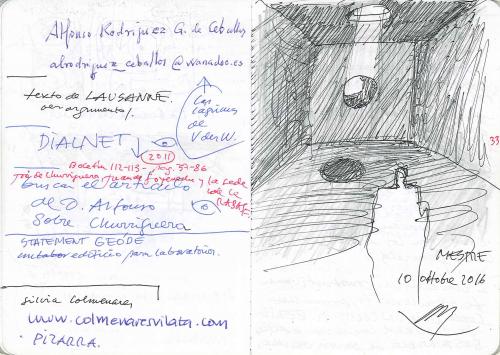 Alfonso Rodriguez G. de Ceballos
alrodriguez_ceballos@wanadoo.es
texto de LAUSANNE.
ver argumento/.
Las
lágrimas
de
V der W.
DIALNET
2011
Boletín 112-113 - pág. 57-86
José de Churriguera, Juan de Goyeneche y la sede
de la
RABASF
buscar el artículo
de D. Alfonso
sobre Churriguera
STATEMENT GEODE
edificio para laboratorios.
silvia colmenares
www.colmenaresvilata.com
PIZARRA.
33
MESTRE
10 ottobre 2016